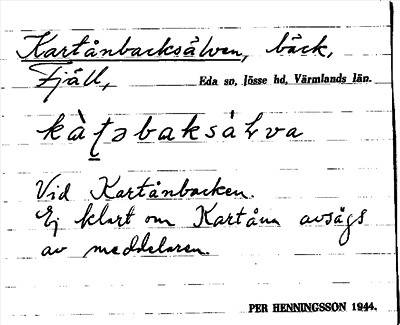 Kartånbacksälven, bäck,
Fjäll, Eda sn, Jösse hd, Värmlands län.
kàt̠əbaksáLva
Vid Kartånbacken.
Ej klart om Kartåna avsägs
av meddelaren.
PER HENNINGSSON 1944.